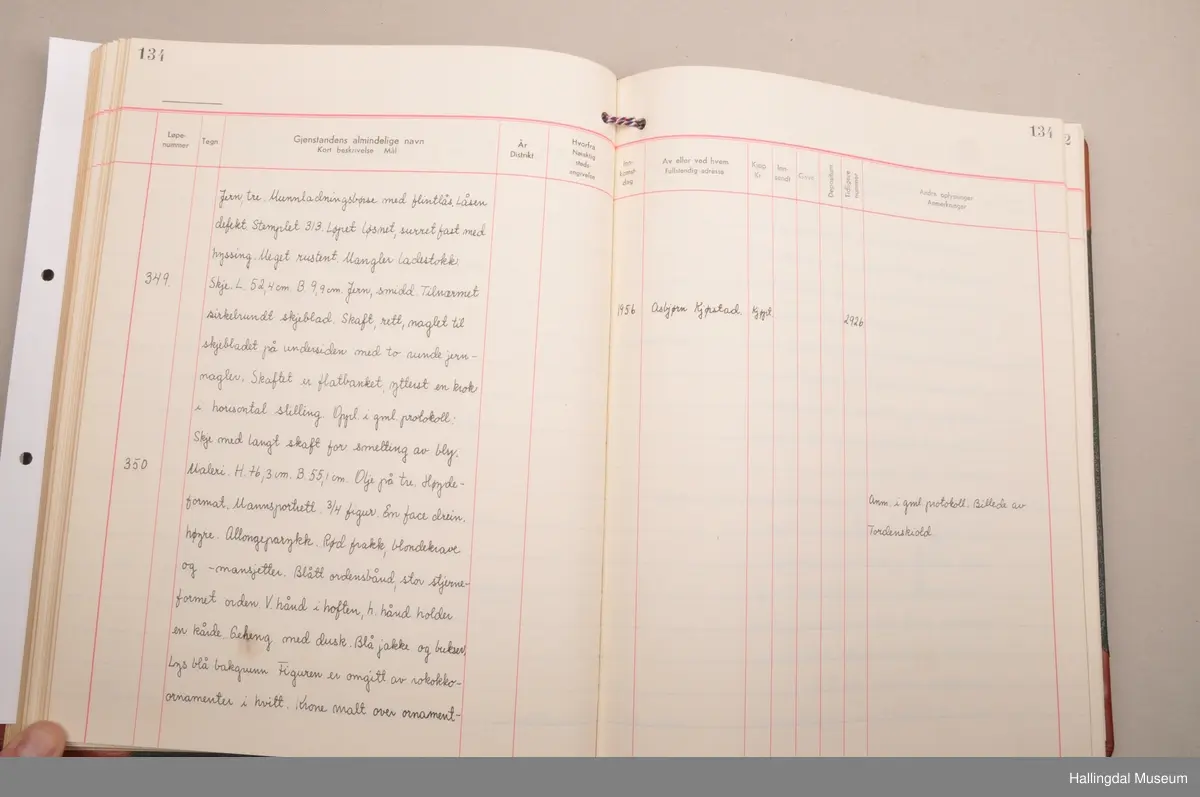 134
Løpe-
nummer
Tegn
Gjenstandens almindelige navn
Kort beskrivelse Mål
År
Distrikt
Hvorfra
Nøiaktig
steds-
angivelse
Jern, tre. Munnladningsbørse med flintlås. Låsen
defekt. Stemplet 313. Løpet løsnet, surret fast med
hyssing. Meget rustent. Mangler ladestokk.
349. Skje. L. 52,4 cm. B. 9,9 cm. Jern, smidd. Tilnærmet
sirkelrundt skjeblad. Skaft, rett, naglet til
skjebladet på undersiden med to runde jern-
nagler. Skaftet er flatbanket, ytterst en krok
i horisontal stilling. Oppl. i gml. protokoll:
Skje med langt skaft for smelting av bly.
350 Maleri. H. 76,3 cm. B. 55,1 cm. Olje på tre. Høyde-
format. Mannsportrett. 3/4 figur. En face drein.
høyre. Allongeparykk. Rød frakk, blondekrave
og -mansjetter. Blått ordensbånd, stor stjerne-
formet orden. V. hånd i hoften, h. hånd holder
en kårde. Geheng med dusk. Blå jakke og bukser.
Lys blå bakgrunn. Figuren er omgitt av rokokko-
ornamenter i hvitt. Krone malt over ornament-
134
2
Inn-
komst-
dag
Av eller ved hvem
fullstendig adresse
Kjøp
Kr.
Inn-
sendt
Gave
Depositum
Tidligere
nummer
Andre oplysninger
Anmerkninger
1956 Asbjørn Kjørstad. Kjøpt. 2926
Anm. i gml. protokoll. Billede av
Tordenskiold
Hallingdal Museum